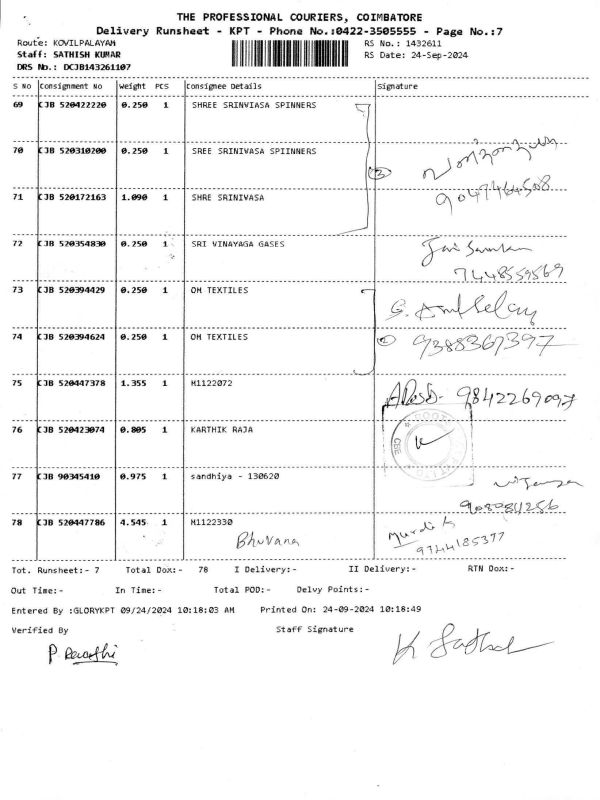 THE PROFESSIONAL COURIERS, COIMBATORE
Delivery Runsheet - KPT - Phone No.:0422-3505555 - Page No.:7
Route: KOVILPALAYAM RS No.: 1432611
Staff: SATHISH KUMAR RS Date: 24-Sep-2024
DRS No.: DCJB143261107
S No Consignment No Weight PCS Consignee Details Signature
69 CJB 520422220 0.250 1 SHREE SRINVIASA SPINNERS
70 CJB 520310200 0.250 1 SREE SRINIVASA SPIINNERS
3
9047464508
71 CJB 520172163 1.090 1 SHRE SRINIVASA
72 CJB 520354830 0.250 1 SRI VINAYAGA GASES
7448559569
73 CJB 520394429 0.250 1 OM TEXTILES
74 CJB 520394624 0.250 1 OM TEXTILES
2 9388367397
75 CJB 520447378 1.355 1 M1122072
9842269097
76 CJB 520423074 0.805 1 KARTHIK RAJA
CBE
77 CJB 90345410 0.975 1 sandhiya - 130620
78 CJB 520447786 4.545 1 M1122330
Bhuvana
9744185377
Tot. Runsheet:- 7 Total Dox:- 78 I Delivery:- II Delivery:- RTN Dox:-
Out Time:- In Time:- Total POD:- Delvy Points:-
Entered By :GLORYKPT 09/24/2024 10:18:03 AM Printed On: 24-09-2024 10:18:49
Verified By Staff Signature